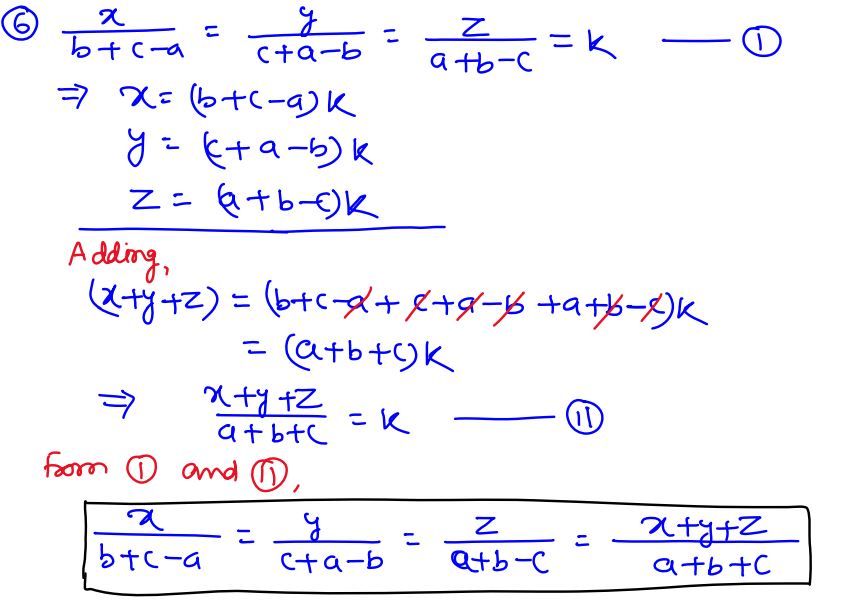 ⑥ x/(b+c-a) = y/(c+a-b) = z/(a+b-c) = k —— Ⓘ
⇒ x = (b+c-a)k
y = (c+a-b)k
z = (a+b-c)k
Adding,
(x+y+z) = (b+c-a+c+a-b+a+b-c)k
= (a+b+c)k
⇒ (x+y+z)/(a+b+c) = k —— ⓘⓘ
from Ⓘ and ⓘⓘ,
x/(b+c-a) = y/(c+a-b) = z/(a+b-c) = (x+y+z)/(a+b+c)